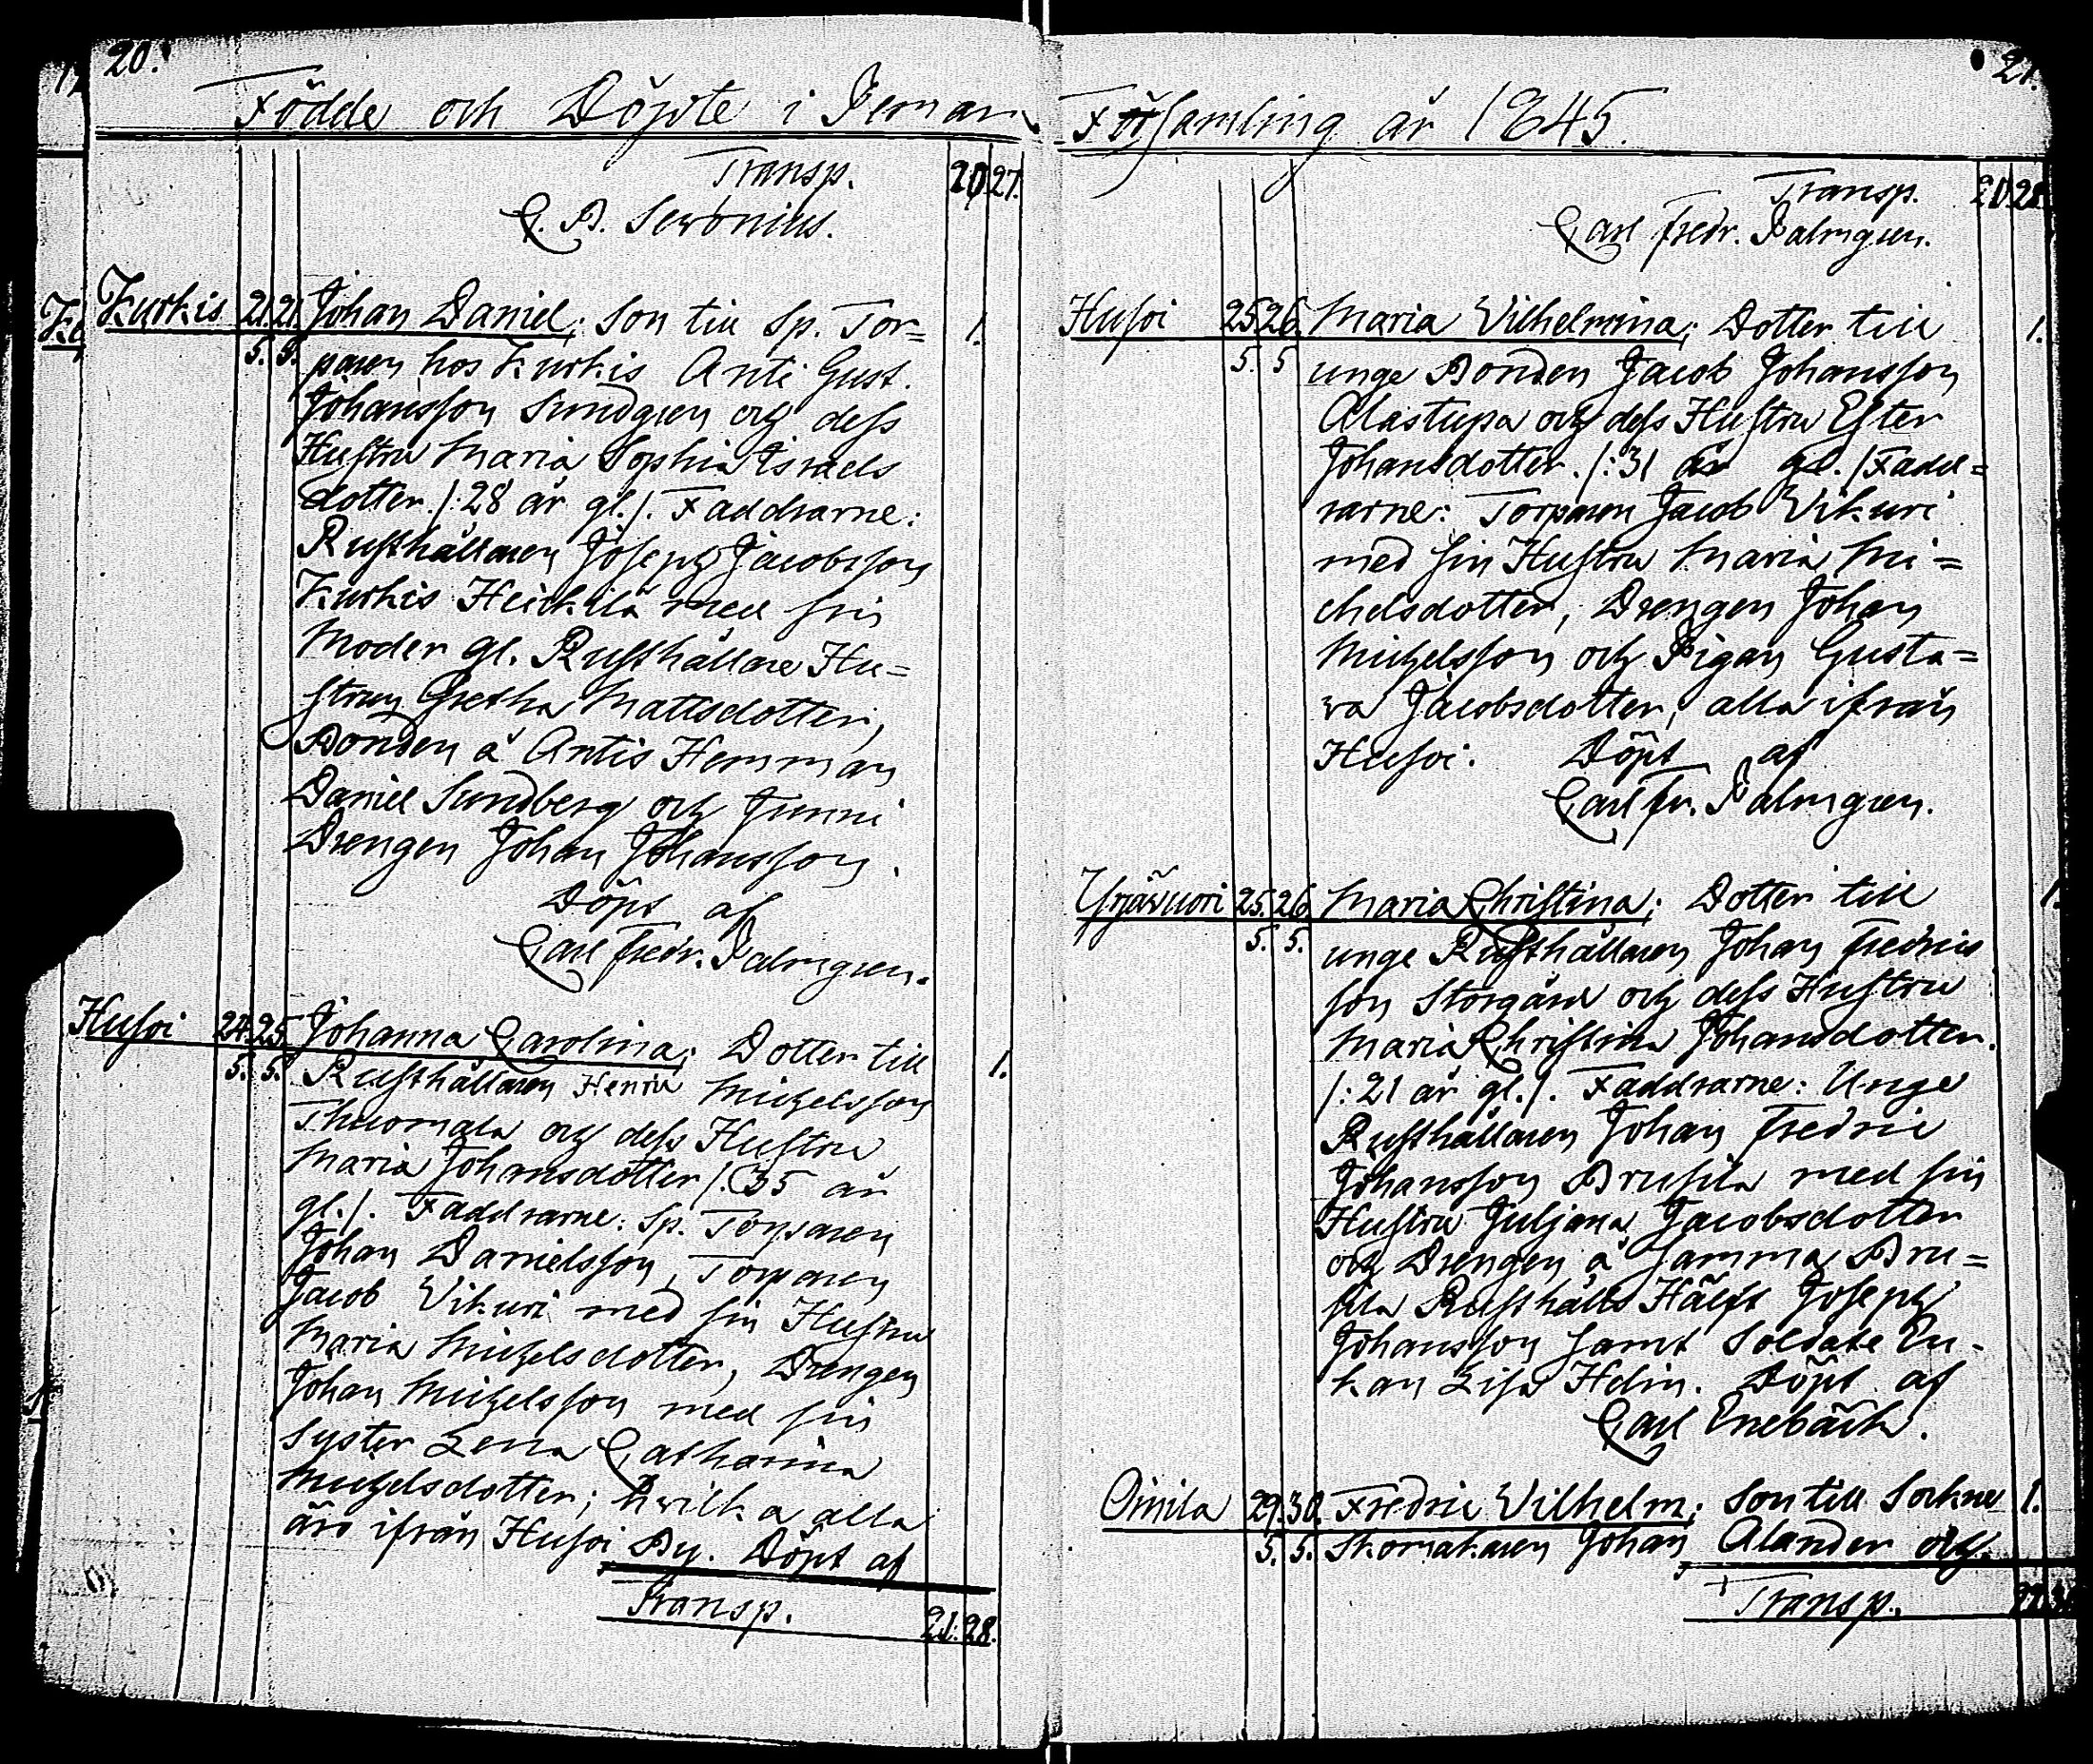 20.
Födde och Döpte i Pemars
Transp. 20 27.
C. B. Seronius.
Kurkis 21. 21. Johan Daniel; Son till Sp. Tor=
5. 5. paren hos Kurkis Anti Gust. 1.
Johansson Sundgren och dess
Hustru Maria Sophia Israels
dotter. /: 28 år gl. /. Faddrarne:
Rusthållaren Joseph Jacobsson
Kurkis Heickilä med sin
Moder gl. Rusthållare Hu=
strun Gretha Mattsdotter,
Bonden å Antis Hemman
Daniel Sundberg och Junni
Drengen Johan Johansson.
Döpt af
Carl Fredr. Palmgren.
Husoi 24. 25. Johanna Carolina; Dotter till
5. 5. Rusthållaren Henric Michelsson 1.
Thuomala och dess Hustru
Maria Johansdotter /: 35 år
gl. /. Faddrarne: Sp. Torparen
Johan Danielsson, Torparen
Jacob Vikuri med sin Hustru
Maria Michelsdotter, Drengen
Johan Michelsson med sin
Syster Lena Catharina
Michelsdotter; hvilka alla
äro ifrån Husoi By. Döpt af
Transp. 21. 28.
21.
Församling år 1845.
Transp. 21. 28.
Carl Fredr. Palmgren.
Husoi 25 26 Maria Vilhelmina; Dotter till 1.
5. 5 unge Bonden Jacob Johansson
Alastupa och dess Hustru Ester
Johansdotter. /: 31 år gl. / Fadd=
rarne: Torparen Jacob Vikuri
med sin Hustru Maria Mi=
chelsdotter, Drengen Johan
Michelsson och Pigan Gusta=
va Jacobsdotter, alla ifrån
Husoi. Döpt af
Carl Fr. Palmgren.
Yrjävuori 25. 26 Maria Christina; Dotter till 1.
5. 5. unge Rusthållaren Johan Fredrics
son Storgård och dess Hustru
Maria Christina Johansdotter.
/: 21 år gl. /. Faddrarne: Unge
Rusthållaren Johan Fredric
Johansson Brusila med sin
Hustru Juljana Jacobsdotter
och Drengen å samma Bru=
sila Rusthålls Hälft Joseph
Johansson samt Soldate En-
kan Lisa Helin. Döpt af
Carl Enebäck.
Oinila 29. 30. Fredric Vilhelm; Son till Sockne 1.
5. 5. Skomakaren Johan Alander och
Transp.